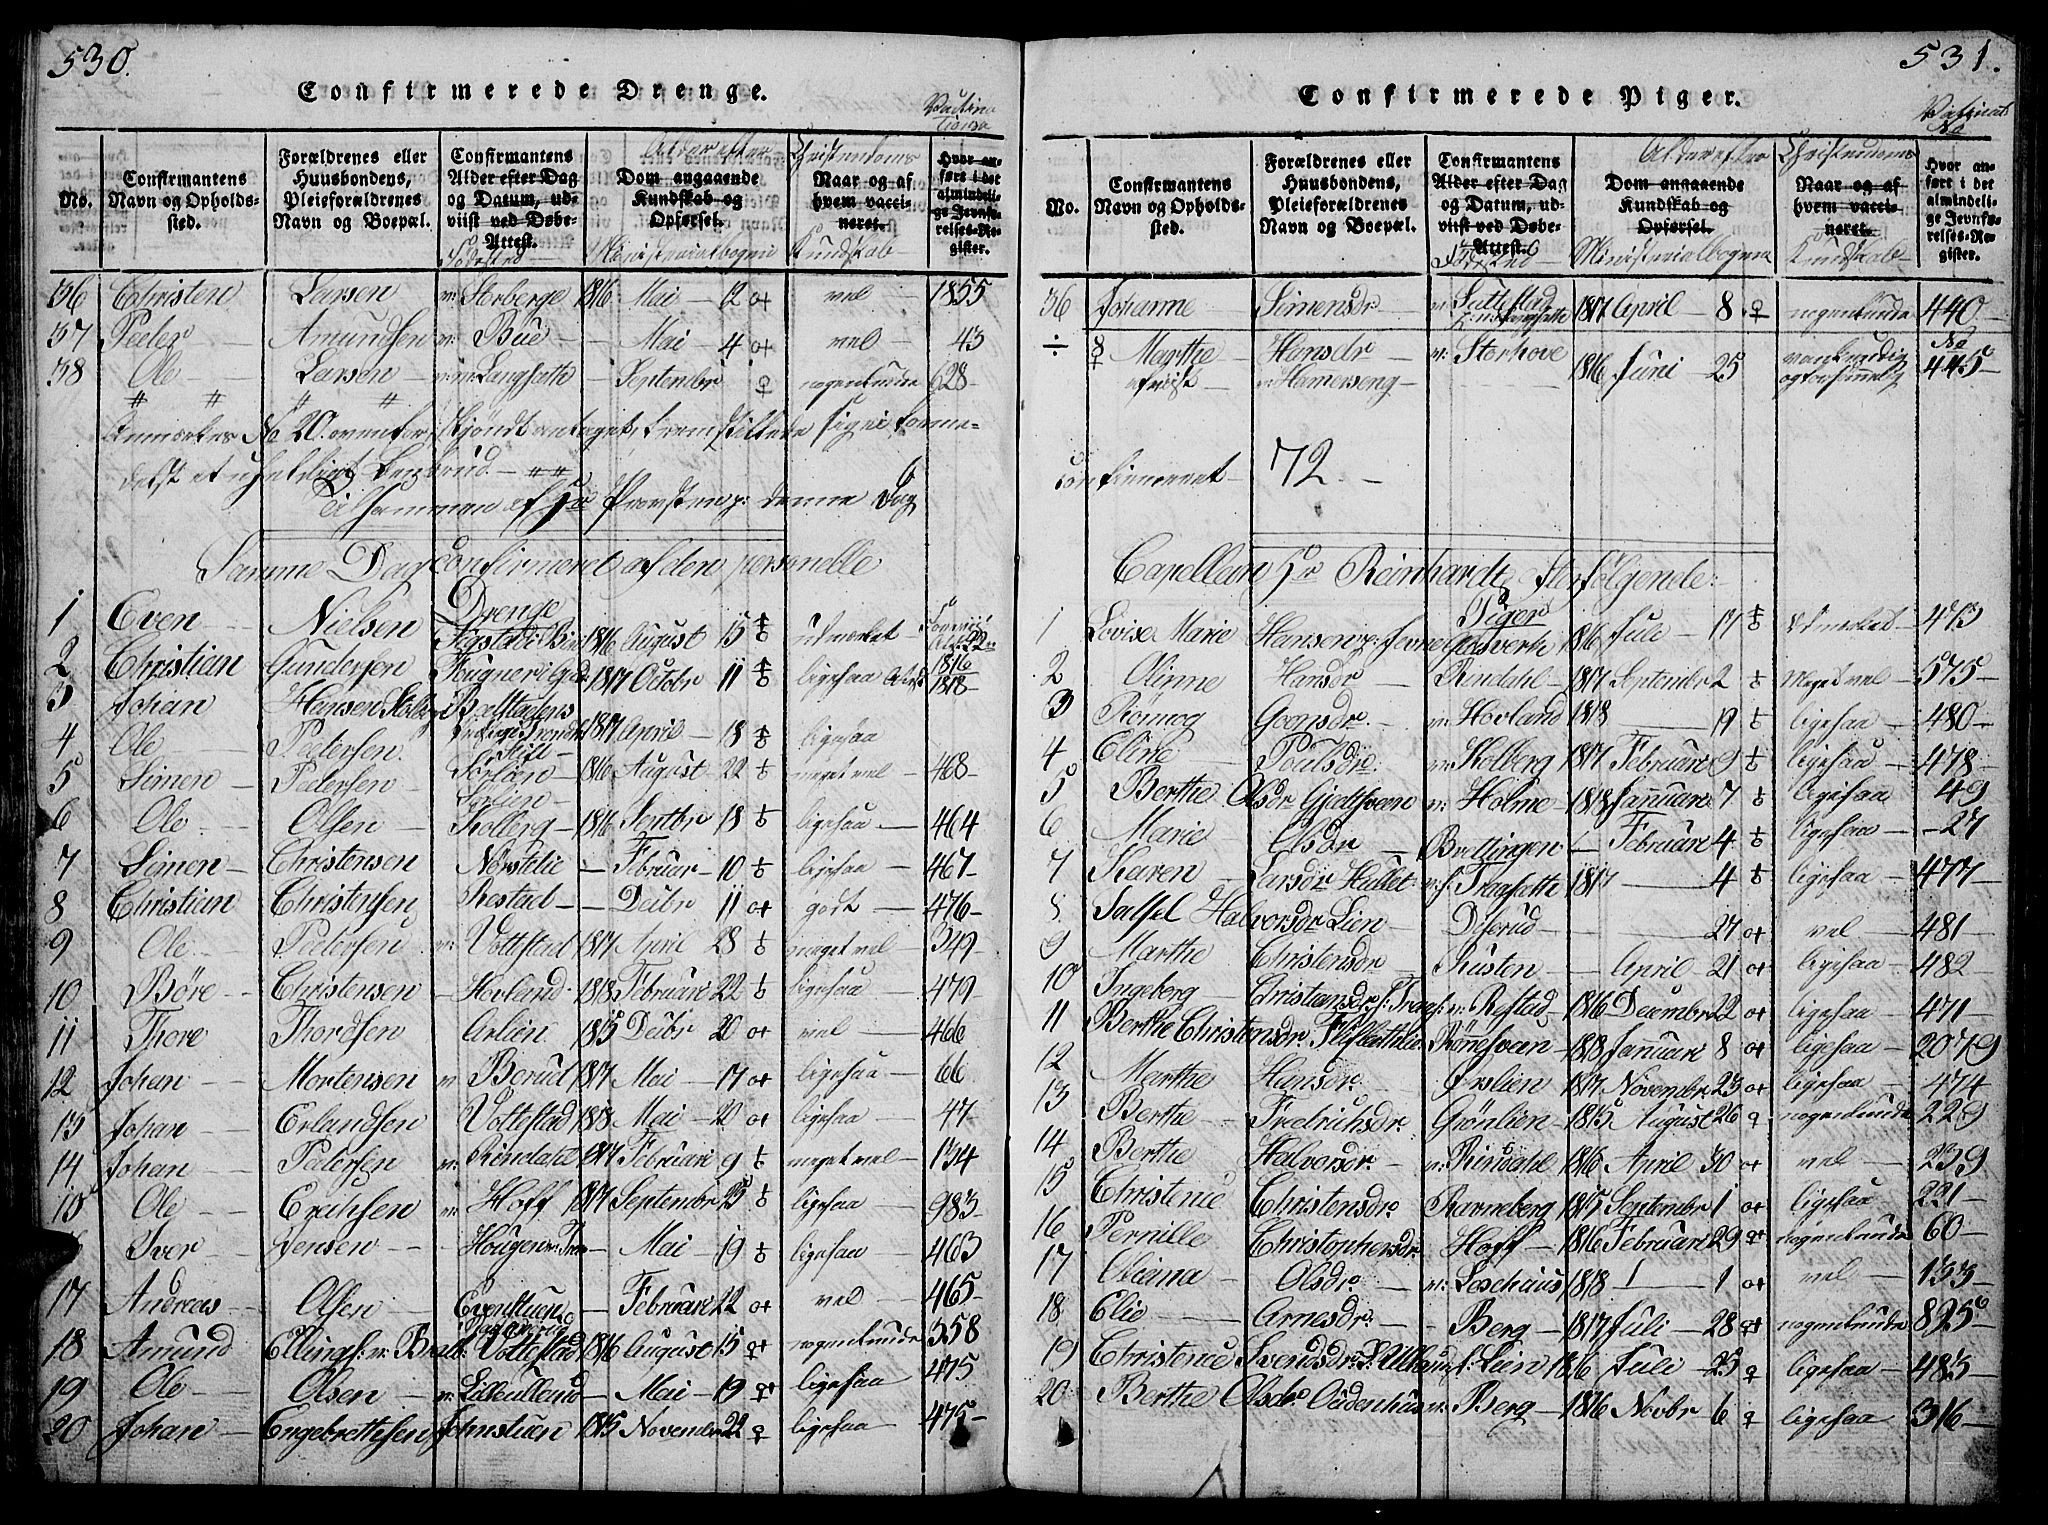 530.
Confirmerede Drenge.
No.
Confirmantens Navn og Opholdssted.
Forældrenes eller Huusbondens, Pleieforældrenes Navn og Boepæl.
Confirmantens Alder efter Dag og Datum, udviist ved Døbe-Attest.
Dom angaaende Kundskab og Opførsel.
Naar og af hvem vaccineret.
Hvor anført i det almindelige Jevnførelses-Register.
Alder efter Ministerialbogen
Christendoms Kundskab
36 Christen Larsen Storberge 1816 Mai 12 vel 1855
37 Peder Amundsen Bue Mai 4 vel 43
38 Ole Larsen Langsæth September nogenlunde 628
Anmærkes No 20 ovenfor,
Tilsammen af Hr Provsten p: denne Dag
Samme Dag confirmeret af den personelle
Drenge
1 Even Nielsen Sigstad i Biri 1816 August 15 udmærket
2 Christian Gundersen 1817 Octobr 11 ligesaa 1816 1818
3 Johan Hansen 1817 April 18 ligesaa
4 Ole Pedersen Sørlien 1816 August 22 meget vel 468
5 Simen Pedersen Sørlien
6 Ole Olsen Kolberg 1816 Septbr 18 ligesaa 464
7 Simen Christensen Nørstelie Februar 10 ligesaa 467
8 Christian Christensen Restad Decbr 11 godt 476
9 Ole Pedersen Vottestad 1817 April 28 meget vel 349
10 Børe Christensen Hovland 1818 Februari 22 ligesaa 479
11 Thore Thordsen Ørlien 1815 Decbr 20 vel 466
12 Johan Mortensen Berud 1817 Mai 17 ligesaa 66
13 Johan Erlandsen Vottestad 1818 Mai 20 ligesaa 47
14 Johan Pedersen Rindahl 1817 Februari 9 meget vel 134
15 Ole Erichsen Hoff 1817 Septembr 25 ligesaa 983
Iver Jensen Hougen Mai 19 ligesaa 463
17 Andreas Olsen Februari 22 vel 465
18 Amund Vottestad 1816 August 15 nogenlunde 358
19 Ole Olsen Mai 19 ligesaa 475
20 Johan Engebrethsen Johnstuen 1815 November 22 ligesaa 475
531.
Confirmerede Piger.
No.
Confirmantens Navn og Opholdssted.
Forældrenes eller Huusbondens, Pleieforældrenes Navn og Boepæl.
Confirmantens Alder efter Dag og Datum, udviist ved Døbe-Attest.
Dom angaaende Kundskab og Opførsel.
Naar og af hvem vaccineret.
Hvor anført i det almindelige Jevnførelses-Register.
Alder efter Ministerialbogen
Christendoms Kundskab
36 Johanne Simensdr Suttestad 1817 April 8 nogenlunde 440
÷ 8 Marthe Hansdr Storhove 1816 Juni 25 445
Hamerseng
confirmeret 72.
Capellan Hr Reinhardt følgende:
Piger
1 Lovise Marie Hansen 1816 Juli 17 Udmærket 473
2 Olinne Hansdr Rindahl 1817 September 2 Meget vel 575
3 Rønnog Goonsdr Hovland 1818 19 ligesaa 480
4 Eline Poulsdr Kolberg 1817 Februari 9 ligesaa 478
5 Berthe Olsdr Holme 1818 Januari 7 ligesaa 49
6 Marie Olsdr Brettingen Februari 4 ligesaa 27
7 Karen Larsdr Hullet Traaseth 1817 4 ligesaa 477
8 Halvorsdr Lien Deserud 27 vel 481
9 Marthe Christensdr Rusten April 21 ligesaa 482
10 Ingeberg Christiansdr Restad 1816 Decembr 22 ligesaa 471
11 Berthe Christiansdr 1818 Januari 8 ligesaa 2079
12 Marthe Hansdr Ørslien 1817 Novembr 23 ligesaa 474
13 Berthe Fredrichsdr Grønlien 1815 August 26 nogenlunde 229
14 Berthe Halvorsdr Rindahl 1816 April 30 vel 239
15 Christence Christensdr Ranneberg 1815 Septembr 1 ligesaa 221
16 Pernille Christophersdr Hoff 1816 Februari 29 nogenlunde 60
17 Oleana Olsdr Leschaus 1818 1 vel 133
18 Elie Arnesdr Berg 1817 Juli 28 nogenlunde
19 Christence Svendsdr Lien 1816 Juli 25 ligesaa 483
20 Berthe Olsdr Odenhus Berg 1816 Novbr 6 ligesaa 316